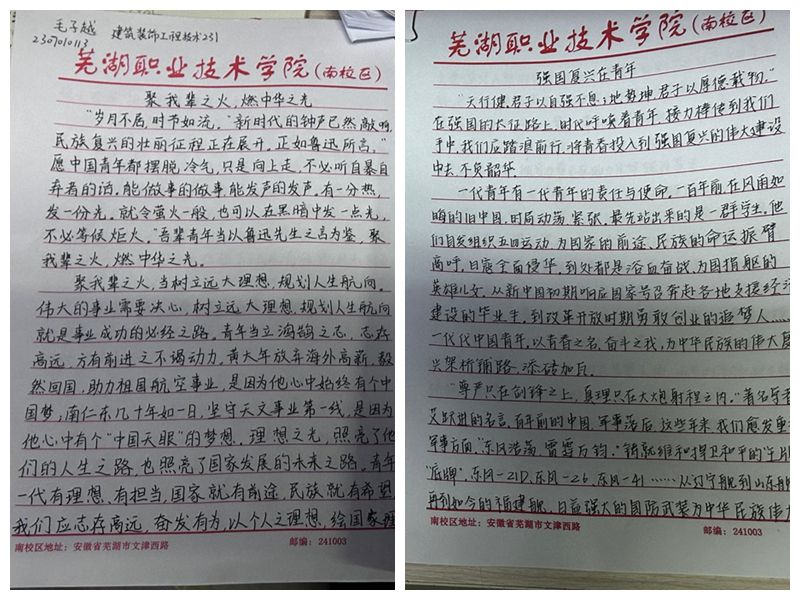 毛子越 建筑装饰工程技术231
2307010113
芜湖职业技术学院(南校区)
聚我辈之火,燃中华之光
"岁月不居,时节如流。"新时代的钟声已然敲响,
民族复兴的壮丽征程正在展开,正如鲁迅所言,"
愿中国青年都摆脱冷气,只是向上走,不必听自暴自
弃者的话。能做事的做事,能发声的发声。有一分热,
发一份光。就令萤火一般,也可以在黑暗中发一点光,
不必等候炬火。"吾辈青年当以鲁迅先生之言为鉴,聚
我辈之火,燃中华之光。
聚我辈之火,当树立远大理想,规划人生航向。
伟大的事业需要决心,树立远大理想,规划人生航向
就是事业成功的必经之路。青年当立鸿鹄之志,志存
高远,方有前进之不竭动力。黄大年放弃海外高薪,毅
然回国,助力祖国航空事业,是因为他心中始终有个中
国梦;南仁东几十年如一日,坚守天文事业第一线,是因为
他心中有个"中国天眼"的梦想。理想之光,照亮了他
们的人生之路,也照亮了国家发展的未来之路。青年
一代有理想、有担当,国家就有前途,民族就有希望
我们应志存高远,奋发有为,以个人之理想,绘国家
南校区地址:安徽省芜湖市文津西路 邮编:241003
芜湖职业技术学院(南校区)
强国复兴在青年
"天行健,君子以自强不息;地势坤,君子以厚德载物。"
在强国的大征路上,时代呼唤着青年,接力棒传到我们
手中,我们应踏浪前行,将青春投入到强国复兴的伟大建设
中去,不负韶华。
一代青年有一代青年的责任与使命。一百年前,在风雨如
晦的旧中国,时局动荡、紧张,最先站出来的是一群学生。他
们自发组织五四运动,为国家的前途、民族的命运振臂
高呼。日寇全面侵华,到处都是浴血奋战、为国捐躯的
英雄儿女。从新中国初期响应国家号召奔赴各地支援经济
建设的毕业生,到改革开放时期勇敢创业的追梦人……
一代代中国青年,以青春之名,奋斗之我,为中华民族的伟大复
兴架桥铺路、添砖加瓦。
"尊严只在剑锋之上,真理只在大炮射程之内。"著名
跃进的名言。百年前的中国,军事落后,这些年来我们愈发重
军事方面,"东风浩荡,雷霆万钧。"铸就维和捍卫和平的
"底牌"。东风-21D、东风-26、东风-41……从辽宁舰到山东舰
再到如今的福建舰,日益强大的国防武装为中华民族伟
南校区地址:安徽省芜湖市文津西路 邮编:241003